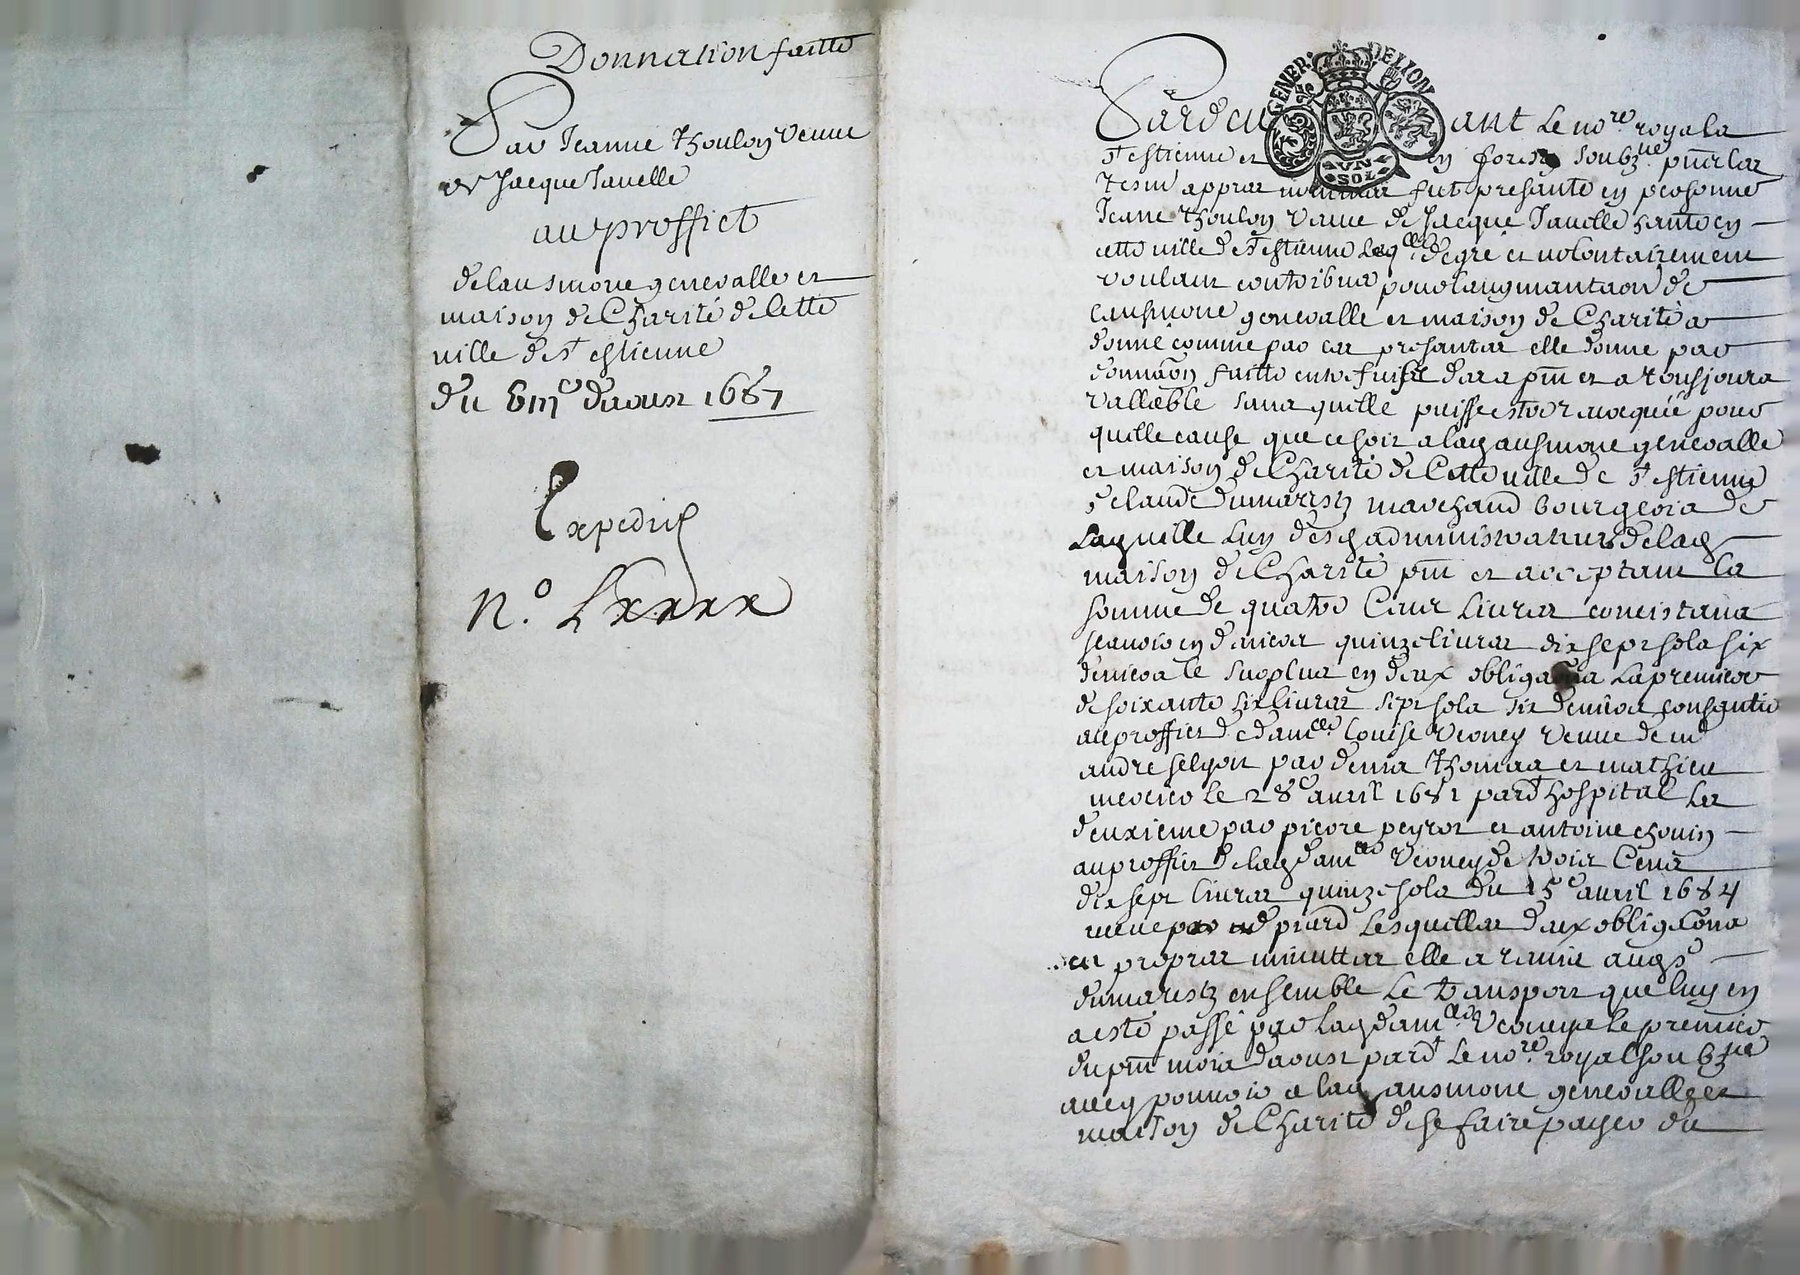 Donnation faitte
Par Jeanne thoulon veuue
de Jacque Jauelle
au proffict
de lausmone generalle et
maison de Charité de Cette
uille de st estienne
du 6me daoust 1687
Expedrié
No. Lxxxx
GENER. DE LION
VN
SOL
Pardeuant Le nore royal a
st estienne et en forestz soubzne pnt les
tesm appres nommes fut presante en personne
Jeane thoulon veuue de Jacque Jauelle hante en
cette uille de st estienne Laqlle de gré et uolontairement
voulant contribuer pour laugmantaon de
lausmone generalle et maison de Charité a
donné comme par ces presantes elle donne par
donnaon faitte entre fuifz dez a pnt et a tousjours
vallable sans quelle puisse estre reuoquée pour
quelle cause que ce soit a lad ausmone generalle
et maison de Charité de Cette uille de st estienne
sr claude dumarestz marchand bourgeois de
Laquelle Luy des admininistrateurs de lad
maison de Charité pnt et acceptant la
somme de quatre Cent Liures concistans
scauoir en deniers quinze liures dix sept sols six
deniers le surplus en deux obligaons La premiere
de soixante six liures sept sols six deniers consantie
au proffict de damlle Louise Verney veuue de md
andre selyon par denis thomas et mathieu
mercier le 28e auril 1681 pard hospital La
deuxieme par pierre peyrot et antoine chouin
au proffict de lad damlle Verney de trois Cens
dix sept liures quinze sols du 15e auril 1684
receue par md piard Lesquelles deux obligaons
en propres minuttes elle a remis aud sr
dumarestz ensemble Le transport que luy en
a esté passé par lad damlle Verney le premier
du pnt mois daoust pardt Le nore royal soubzne
auecq pouuoir a lad ausmone generalle et
maison de Charité de se faire payer du